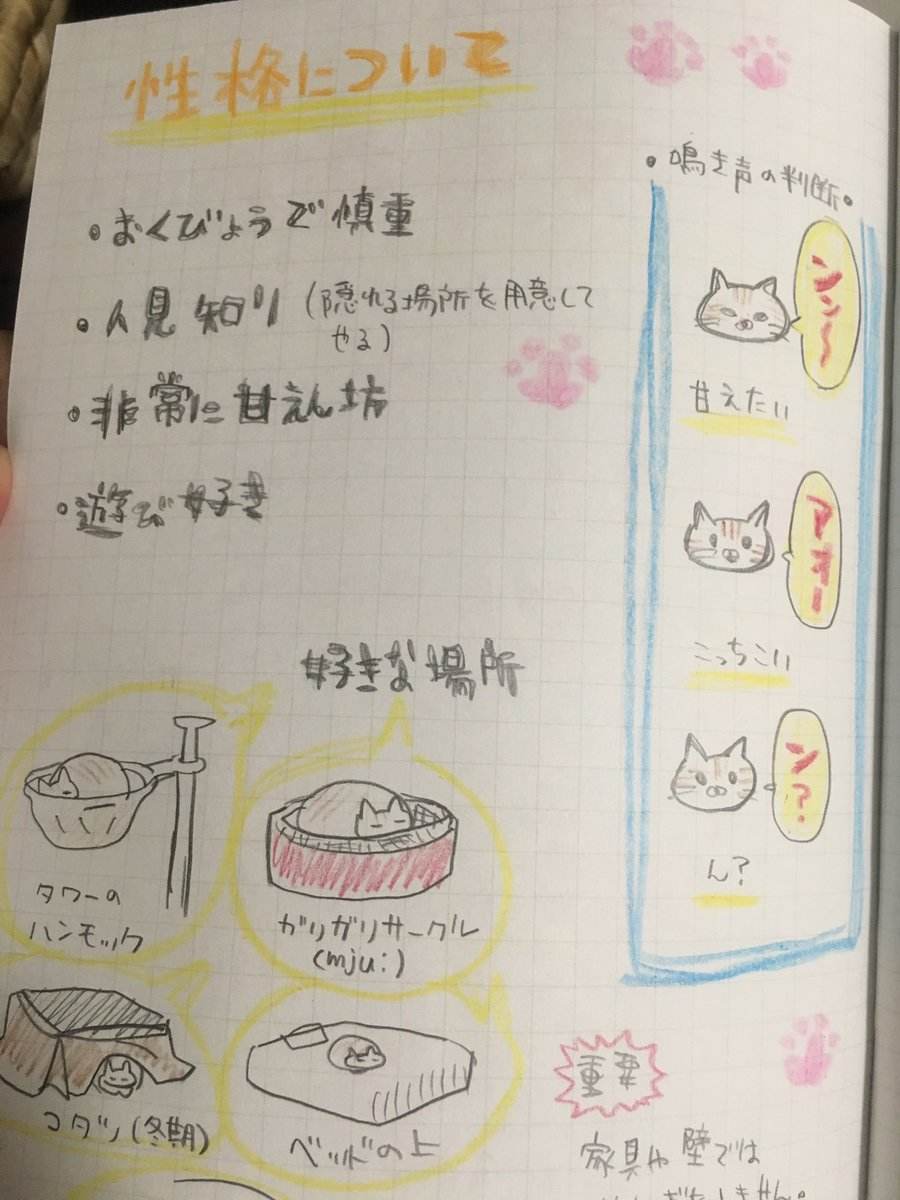 性格について
・おくびょうで慎重
・人見知り(隠れる場所を用意して
やる)
・非常に甘えん坊
・遊び好き
・鳴き声の判断・
ンン〜
甘えたい
アオー
こっちこい
ン?
ん?
好きな場所
タワーの
ハンモック
ガリガリサークル
(mju:)
コタツ(冬期)
ベッドの上
重要
家具や壁では